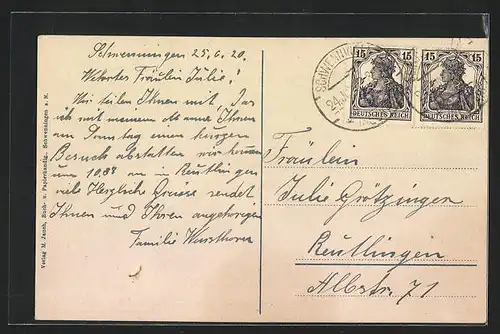 Schwenningen 25.6.20.
Wehrtes Fräulein Julie!
Wir teilen Ihnen mit, das
ich mit meinem
am Sonntag einen kurzen
Besuch abstatten wir kommen
um 10.88 an in Reutlingen
viele Herzliche Grüsse sendet
Ihnen und Ihren angehörigen
Familie
Verlag M. Jauch, Buch- u. Papierhandlg. Schwenningen a. N.
15 15
DEUTSCHES REICH
15 15
DEUTSCHES REICH
Fräulein
Julie Götzinger
Reutlingen
Albstr. 71